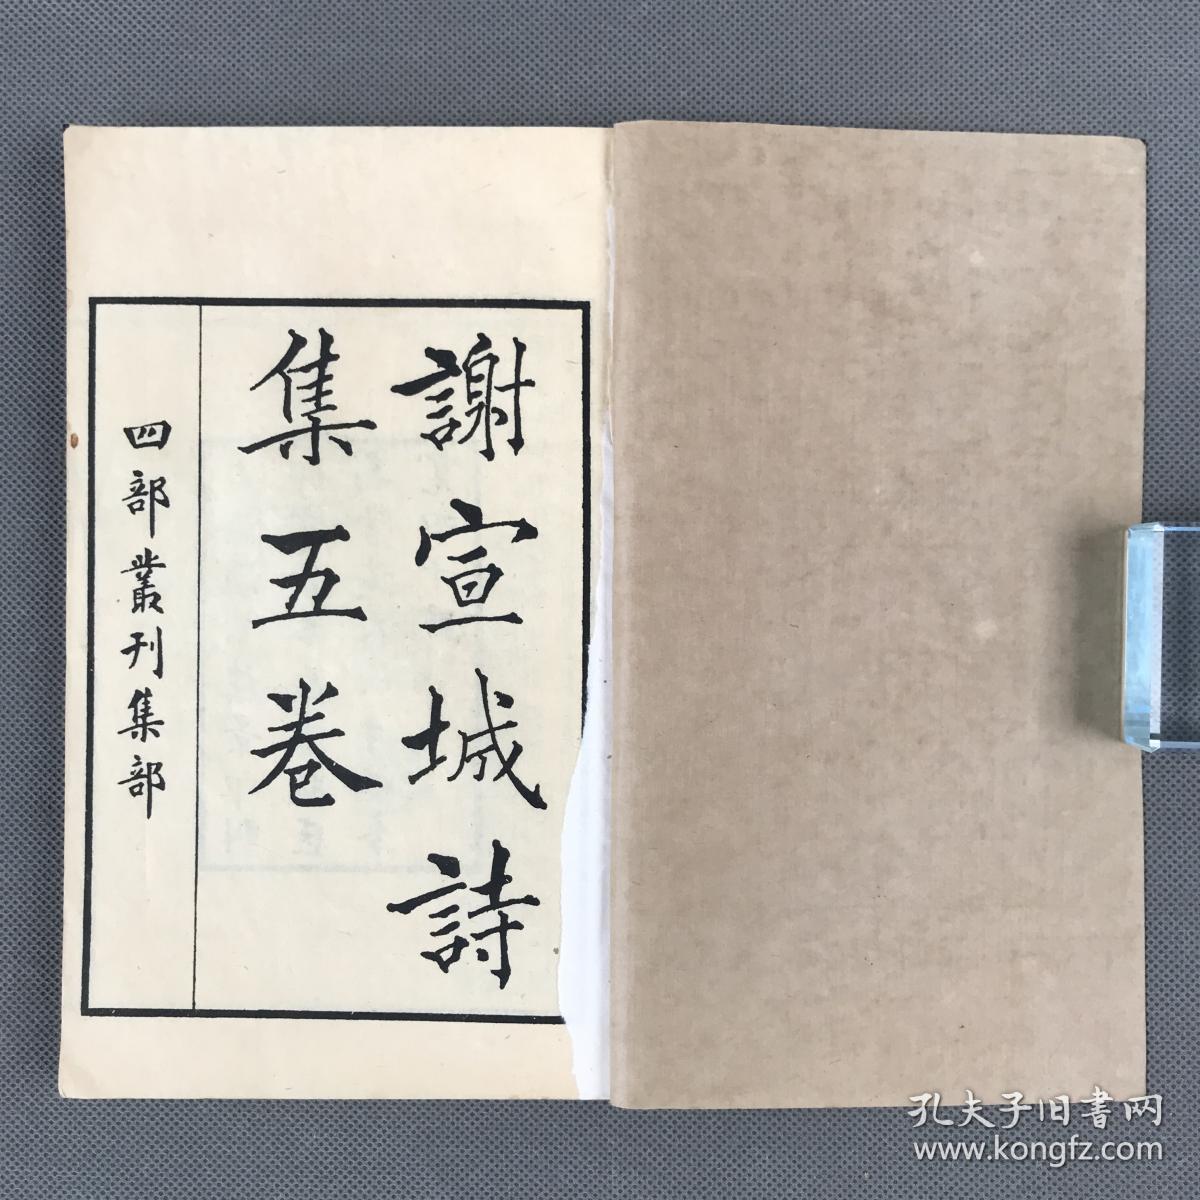 謝宣城詩
集五卷
四部叢刊集部
孔夫子旧書网
www.kongfz.com